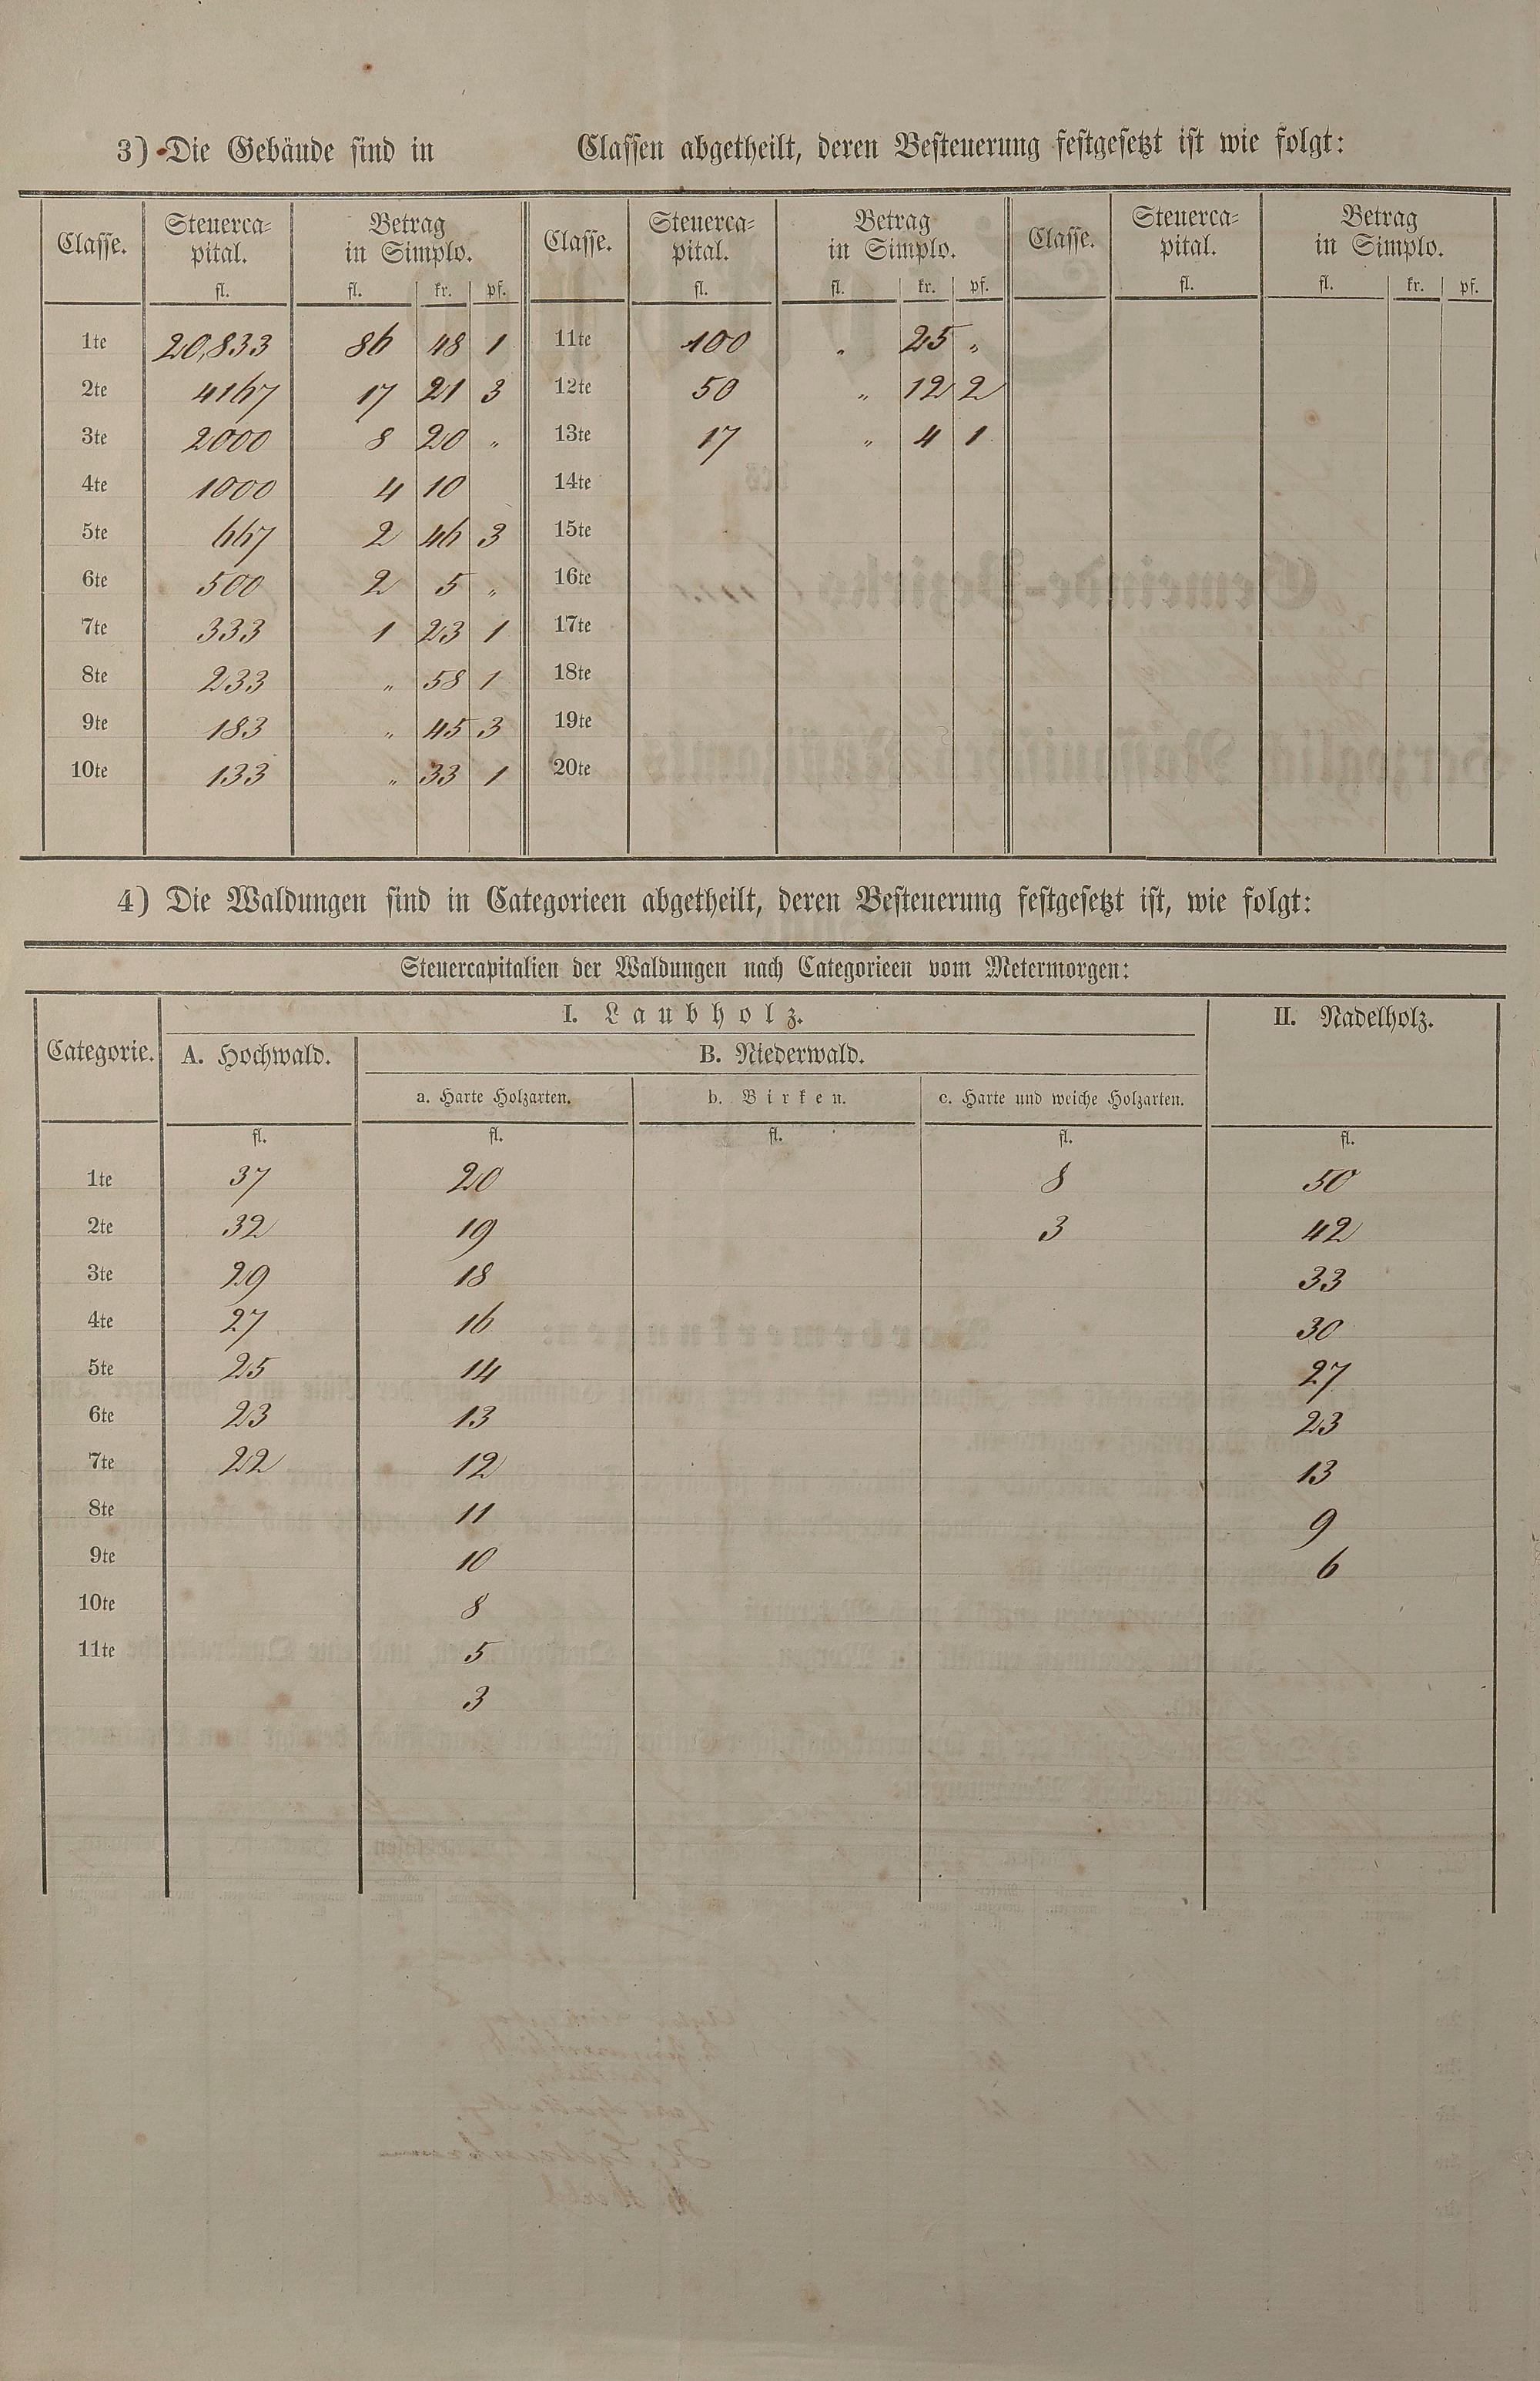 3) Die Gebäude sind in Classen abgetheilt, deren Besteuerung festgesetzt ist wie folgt:
Classe. Steuerca- Betrag Classe. Steuerca- Betrag Classe. Steuerca- Betrag
pital. in Simplo. pital. in Simplo. pital. in Simplo.
fl. fl. kr. pf. fl. fl. kr. pf. fl. fl. kr. pf.
1te 20,833 86 48 1 11te 100 „ 25 „
2te 4167 17 21 3 12te 50 „ 12 2
3te 2000 8 20 „ 13te 17 „ 4 1
4te 1000 4 10 14te
5te 667 2 46 3 15te
6te 500 2 5 „ 16te
7te 333 1 23 1 17te
8te 233 „ 58 1 18te
9te 183 „ 45 3 19te
10te 133 „ 33 1 20te
4) Die Waldungen sind in Categorieen abgetheilt, deren Besteuerung festgesetzt ist, wie folgt:
Steuercapitalien der Waldungen nach Categorieen vom Metermorgen:
I. Laubholz. II. Nadelholz.
Categorie. A. Hochwald. B. Niederwald.
a. Harte Holzarten. b. Birken. c. Harte und weiche Holzarten.
fl. fl. fl. fl. fl.
1te 37 20 8 50
2te 32 19 3 42
3te 29 18 33
4te 27 16 30
5te 25 14 27
6te 23 13 23
7te 22 12 13
8te 11 9
9te 10 6
10te 8
11te 5
3